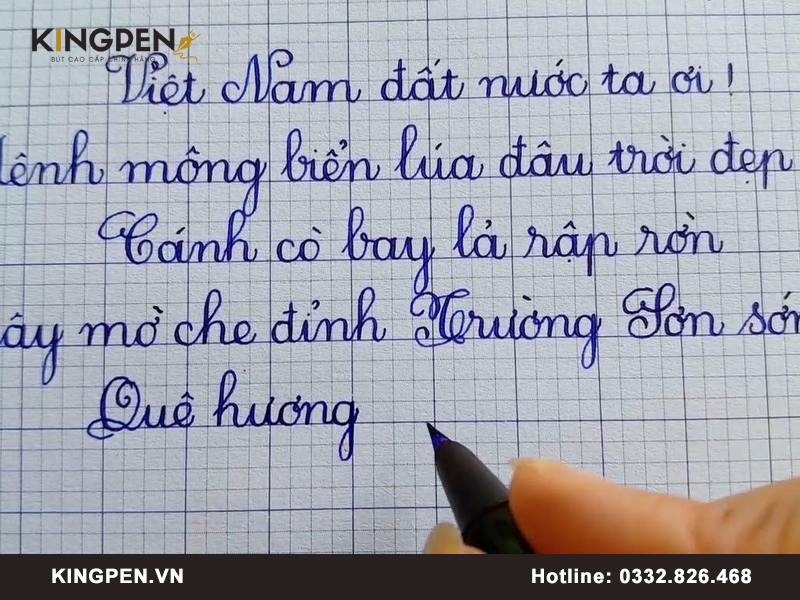 KINGPEN
BÚT CAO CẤP CHÍNH HÃNG
Việt Nam đất nước ta ơi!
lênh mông biển lúa đâu trời đẹp
Cánh cò bay lả rập rờn
ây mờ che đỉnh Trường Sơn sớm
Quê hương
KINGPEN.VN
Hotline: 0332.826.468